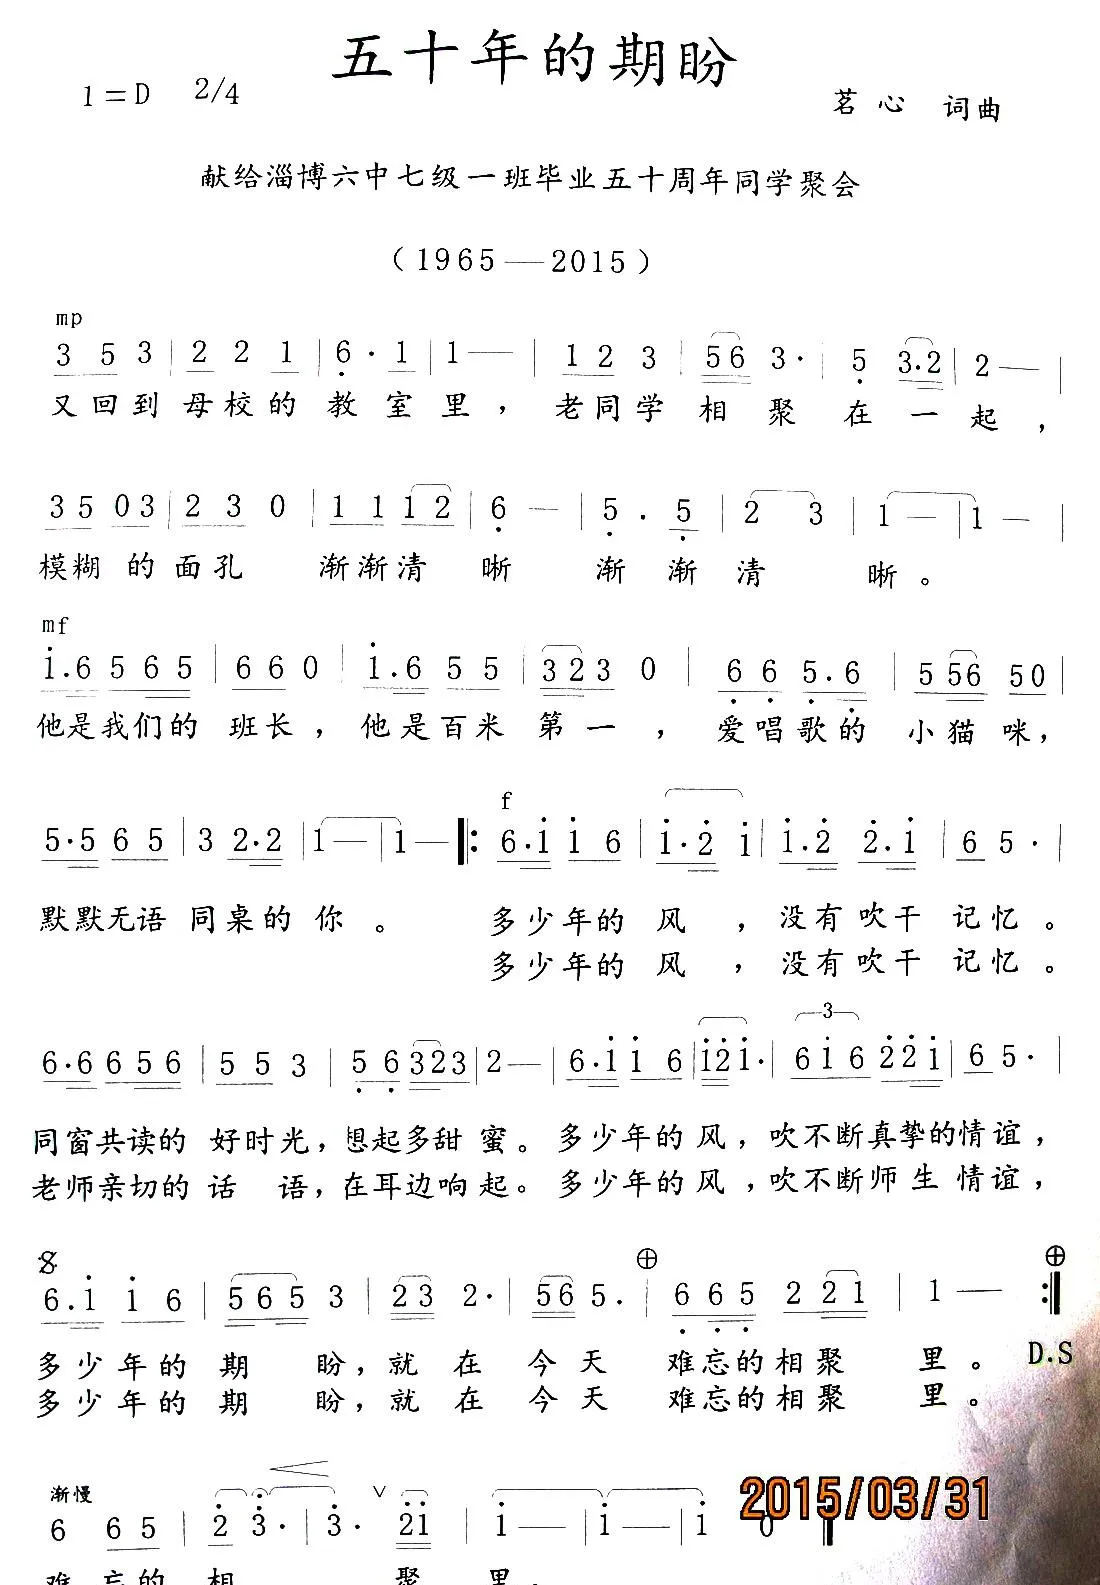 五十年的期盼
1=D 2/4
茗心 词曲
献给淄博六中七级一班毕业五十周年同学聚会
（1965—2015）
mp
3 5 3 | 2 2 1 | 6· 1 | 1— | 1 2 3 | 56 3· | 5 3·2 | 2— |
又回到 母校的 教室里，老同学 相聚在一起，
35 03 | 2 3 0 | 1 1 12 | 6 — | 5 . 5 | 2 3 | 1 — | 1 — |
模糊的面孔 渐渐清晰 渐渐清晰。
mf
i.6 5 65 | 6 6 0 | i.6 5 5 | 323 0 | 6 6 5.6 | 5 56 50 |
他是我们的 班长，他是百米第一，爱唱歌的小猫咪，
f
5·5 6 5 | 3 2·2 | 1— | 1— |: 6·i i 6 | i·2 i | i·2 2·i | 6 5· |
默默无语 同桌的你。 多少年的风，没有吹干记忆。
多少年的风，没有吹干记忆。
3
6·6 6 56 | 5 5 3 | 5 6 323 | 2— | 6·i i 6 | i2i· | 6i6 22i | 6 5· |
同窗共读的 好时光，想起多甜蜜。多少年的风，吹不断真挚的情谊，
老师亲切的话语，在耳边响起。多少年的风，吹不断师生情谊，
6.i i 6 | 565 3 | 23 2· | 56 5. | 6 65 2 21 | 1 — :|
多少年的期盼，就在今天 难忘的相聚里。 D.S
多少年的期盼，就在今天 难忘的相聚里。
渐慢
6 65 | 2 3· | 3· 2i | i— | i— | i 0 |
2015/03/31
难忘的相聚里.